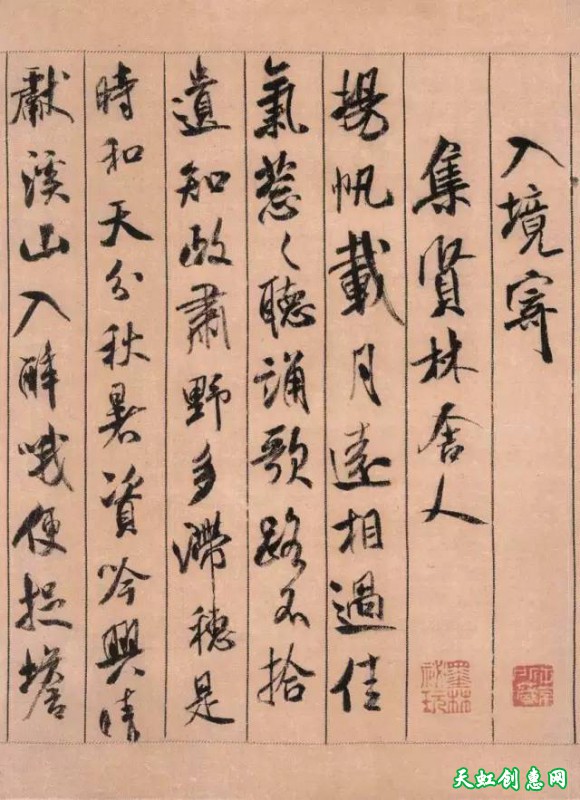 入境寄
集賢林舍人
揚帆載月遠相過佳
氣葱々聽誦歌路不拾
遺知政肅野多滯穗是
時和天分秋暑資吟興晴
獻溪山入醉哦便捉蟾
墨林秘玩
天虹创惠网